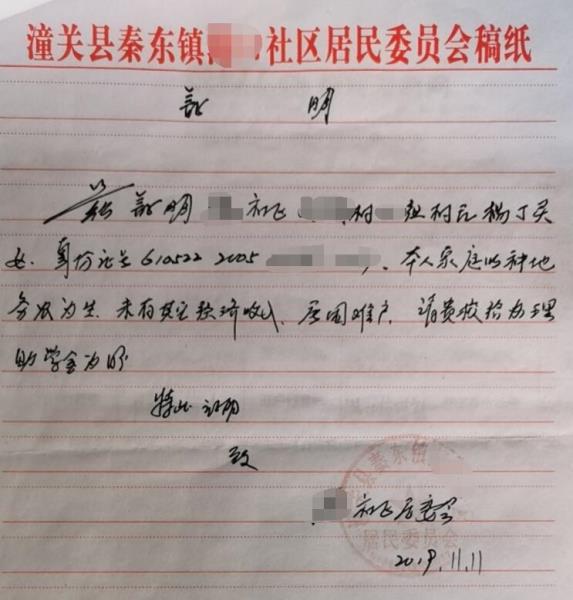 潼关县秦东镇 社区居民委员会稿纸
证 明
兹证明 社区 村 组村民杨丁关
女、身份证号 610522 2005 ）、本人家庭以种地
务农为生、未有其它经济收入、属困难户、请贵校给办理
助学金为盼
特此证明
致
社区居委会
县秦东镇
居民委员会
2019.11.11